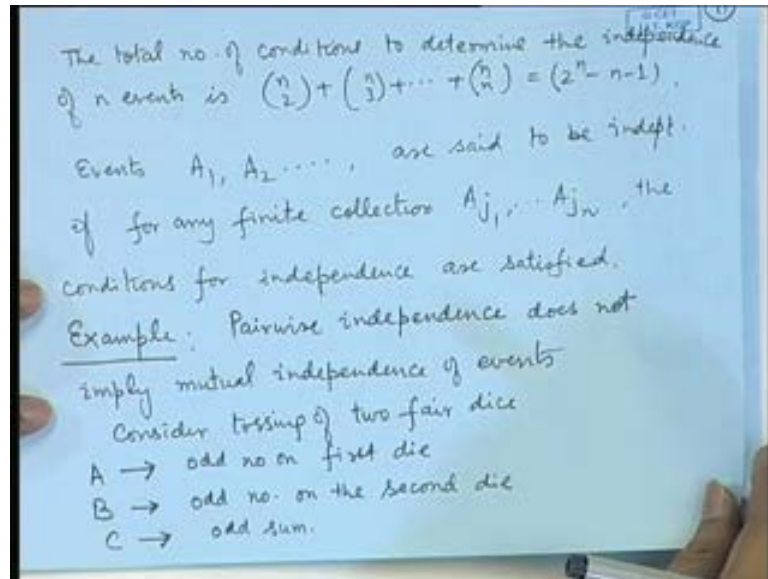 The total no. of conditions to determine the independence
of n events is (n 2) + (n 3) + ... + (n n) = (2^n - n - 1).
Events A1, A2 ....., are said to be indept.
if for any finite collection Aj1, ... Ajn, the
conditions for independence are satisfied.
Example: Pairwise independence does not
imply mutual independence of events
Consider tossing of two fair dice
A → odd no on first die
B → odd no. on the second die
C → odd sum.